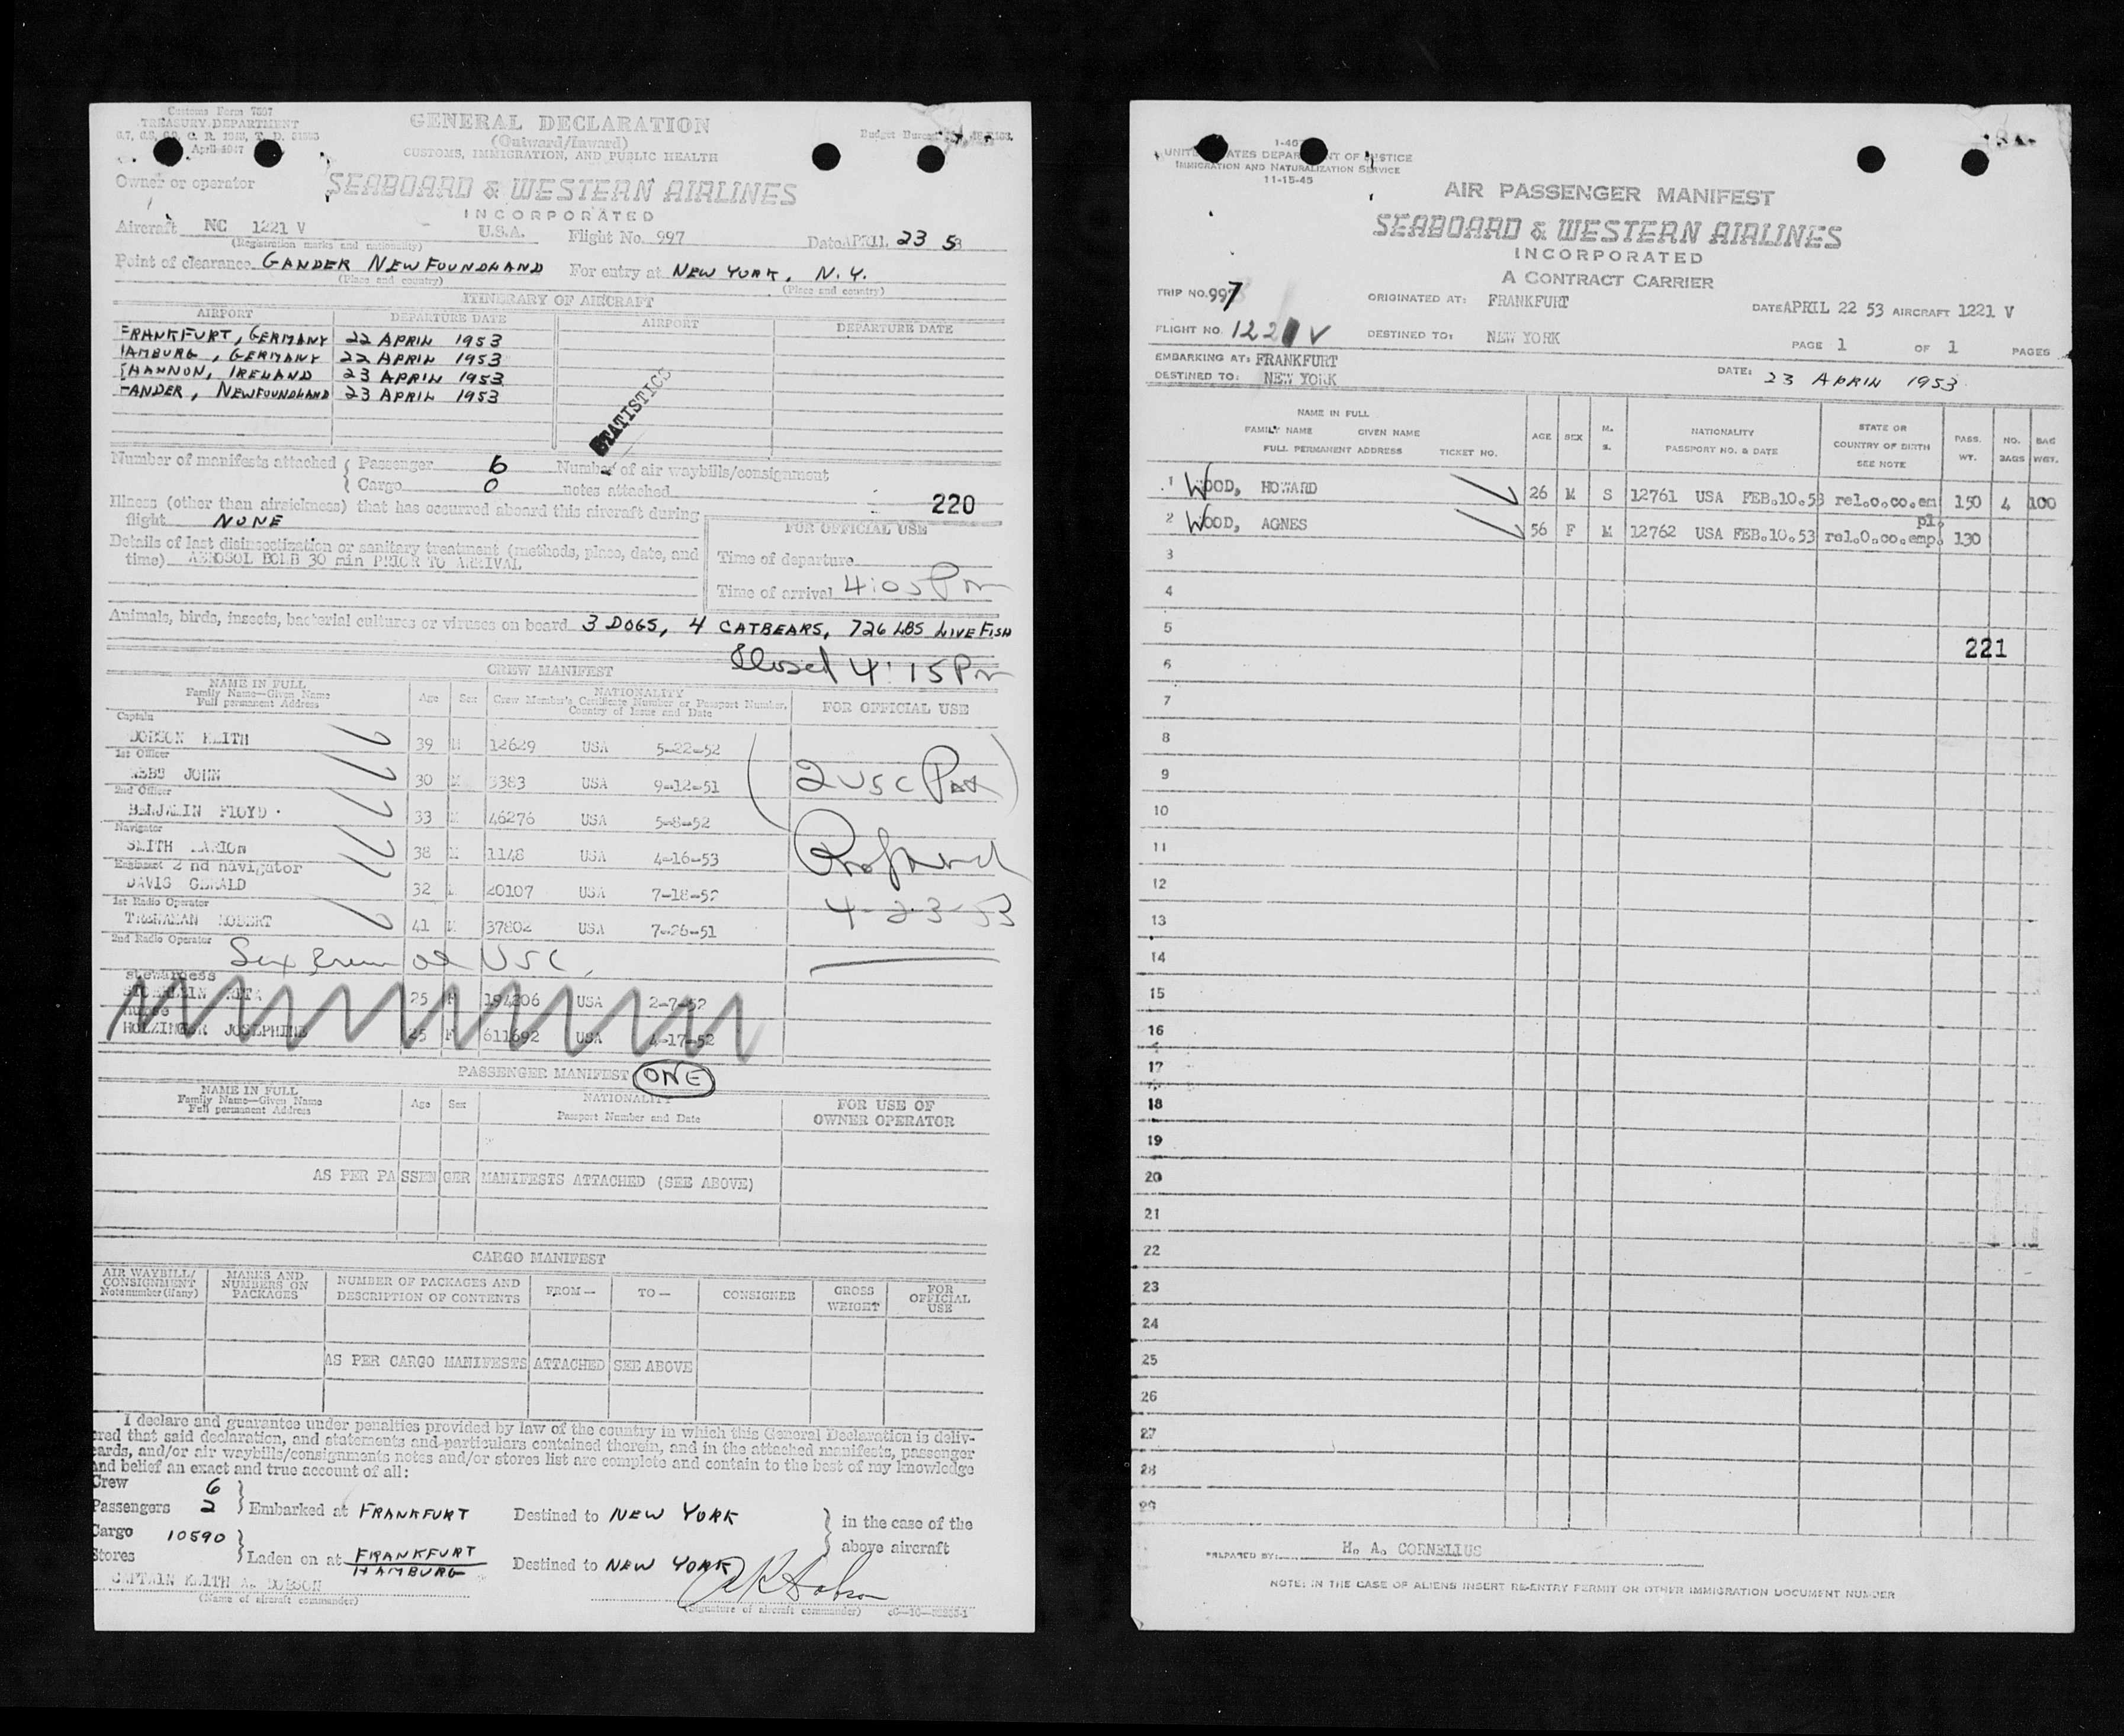 Customs Form 7507
TREASURY DEPARTMENT
April 1947
GENERAL DECLARATION
(Outward/Inward)
CUSTOMS, IMMIGRATION, AND PUBLIC HEALTH
Budget Bureau
Owner or operator SEABOARD & WESTERN AIRLINES
INCORPORATED
Aircraft NC 1221 V U.S.A. Flight No. 997 Date APRIL 23 53
(Registration marks and nationality)
Point of clearance GANDER NEWFOUNDLAND For entry at NEW YORK, N.Y.
(Place and country) (Place and country)
ITINERARY OF AIRCRAFT
AIRPORT DEPARTURE DATE AIRPORT DEPARTURE DATE
FRANKFURT, GERMANY 22 APRIL 1953
HAMBURG, GERMANY 22 APRIL 1953
SHANNON, IRELAND 23 APRIL 1953
GANDER, NEWFOUNDLAND 23 APRIL 1953
STATISTICS
Number of manifests attached { Passenger 6 Number of air waybills/consignment
Cargo 0 notes attached
220
Illness (other than airsickness) that has occurred aboard this aircraft during
flight NONE
FOR OFFICIAL USE
Details of last disinsectization or sanitary treatment (methods, place, date, and
time) AEROSOL BOMB 30 min PRIOR TO ARRIVAL
Time of departure
Time of arrival 4:05 Pm
Animals, birds, insects, bacterial cultures or viruses on board 3 DOGS, 4 CATBEARS, 726 LBS LIVE FISH
Closed 4:15 Pm
CREW MANIFEST
NAME IN FULL
Family Name—Given Name
Full permanent Address
Age Sex
NATIONALITY
Crew Member's Certificate Number or Passport Number,
Country of Issue and Date
FOR OFFICIAL USE
Captain
DOBSON KEITH 39 M 12629 USA 5-22-52
1st Officer
WEBB JOHN 30 M 3383 USA 9-12-51
2 USC Pax
2nd Officer
BENJAMIN FLOYD 33 M 46276 USA 5-8-52
Navigator
SMITH MARION 38 M 1148 USA 4-16-53
Engineer 2 nd navigator
DAVIS GERALD 32 M 20107 USA 7-18-52
4-23-53
1st Radio Operator
ROBERT 41 M 37802 USA 7-26-51
2nd Radio Operator
Six Crew all USC
stewardess
RITA 25 F 194206 USA 2-7-52
nurse
HOLZINGER JOSEPHINE 25 F 611692 USA 4-17-52
PASSENGER MANIFEST ONE
NAME IN FULL
Family Name—Given Name
Full permanent Address
Age Sex
NATIONALITY
Passport Number and Date
FOR USE OF
OWNER OPERATOR
AS PER PASSENGER MANIFESTS ATTACHED (SEE ABOVE)
CARGO MANIFEST
AIR WAYBILL/
CONSIGNMENT
Note number (if any)
MARKS AND
NUMBERS ON
PACKAGES
NUMBER OF PACKAGES AND
DESCRIPTION OF CONTENTS
FROM— TO— CONSIGNEE
GROSS
WEIGHT
FOR
OFFICIAL
USE
AS PER CARGO MANIFESTS ATTACHED SEE ABOVE
I declare and guarantee under penalties provided by law of the country in which this General Declaration is deliv-
ered that said declaration, and statements and particulars contained therein, and in the attached manifests, passenger
cards, and/or air waybills/consignments notes and/or stores list are complete and contain to the best of my knowledge
and belief an exact and true account of all:
Crew 6
Passengers 2 } Embarked at FRANKFURT Destined to NEW YORK } in the case of the
Cargo 10590 above aircraft
Stores } Laden on at FRANKFURT Destined to NEW YORK
HAMBURG
CAPTAIN KEITH A. DOBSON
(Name of aircraft commander) (Signature of aircraft commander)
UNITED STATES DEPARTMENT OF JUSTICE
IMMIGRATION AND NATURALIZATION SERVICE
11-15-45
AIR PASSENGER MANIFEST
SEABOARD & WESTERN AIRLINES
INCORPORATED
A CONTRACT CARRIER
TRIP NO. 997 ORIGINATED AT: FRANKFURT DATE APRIL 22 53 AIRCRAFT 1221 V
FLIGHT NO. 1221 V DESTINED TO: NEW YORK PAGE 1 OF 1 PAGES
EMBARKING AT: FRANKFURT
DESTINED TO: NEW YORK DATE: 23 APRIL 1953
NAME IN FULL
FAMILY NAME GIVEN NAME
FULL PERMANENT ADDRESS TICKET NO.
AGE SEX M. S.
NATIONALITY
PASSPORT NO. & DATE
STATE OR
COUNTRY OF BIRTH
SEE NOTE
PASS. WT.
NO. BAGS
BAG WGT.
1 WOOD, HOWARD 26 M S 12761 USA FEB.10.53 rel.o.co.em 150 4 100
pl.
2 WOOD, AGNES 56 F M 12762 USA FEB.10.53 rel.O.co.emp. 130
3
4
5
221
6
7
8
9
10
11
12
13
14
15
16
17
18
19
20
21
22
23
24
25
26
27
28
29
PREPARED BY: H. A. CORNELIUS
NOTE: IN THE CASE OF ALIENS INSERT RE-ENTRY PERMIT OR OTHER IMMIGRATION DOCUMENT NUMBER